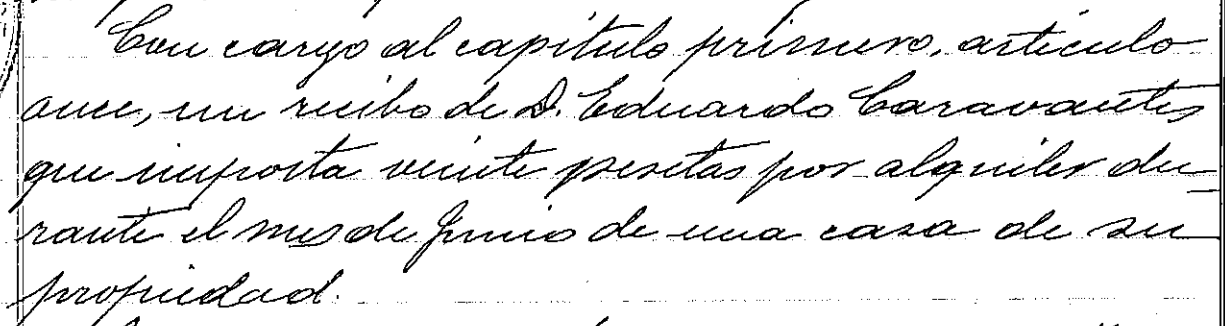 Con cargo al capítulo primero, artículo
once, un recibo de D. Eduardo Caravantes
que importa veinte pesetas por alquiler du-
rante el mes de Junio de una casa de su
propiedad.